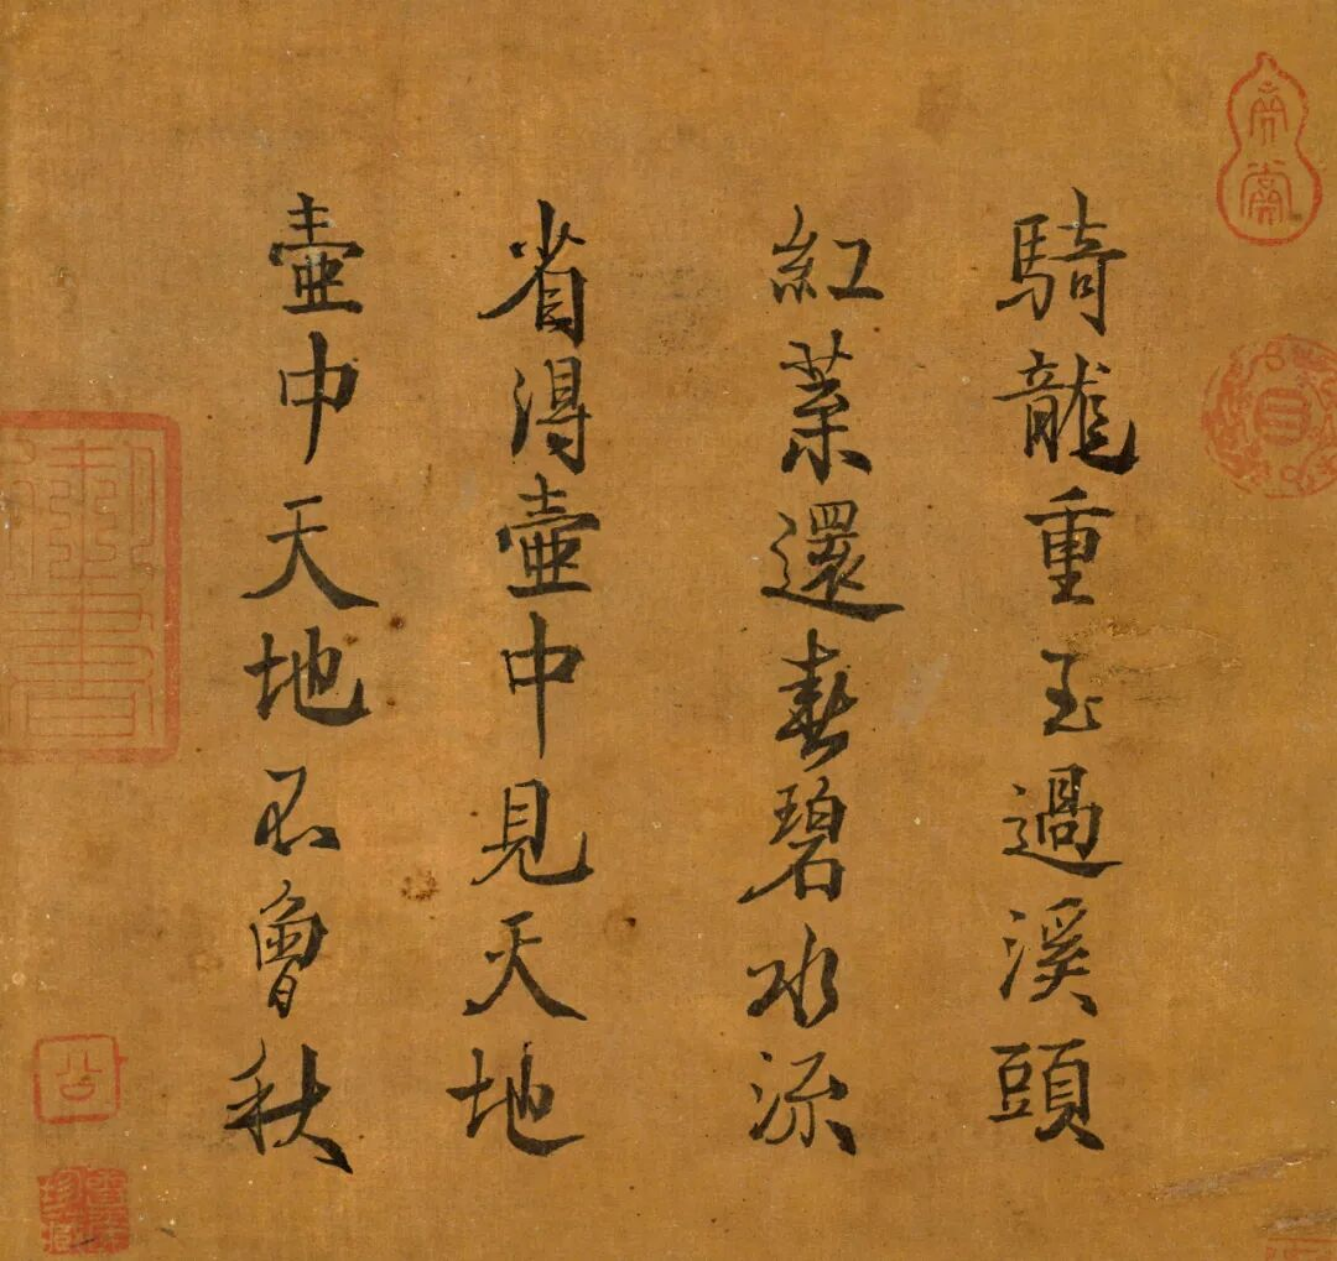 騎龍重玉過溪頭
紅葉還春碧水流
省得壺中見天地
壺中天地不曾秋
御書